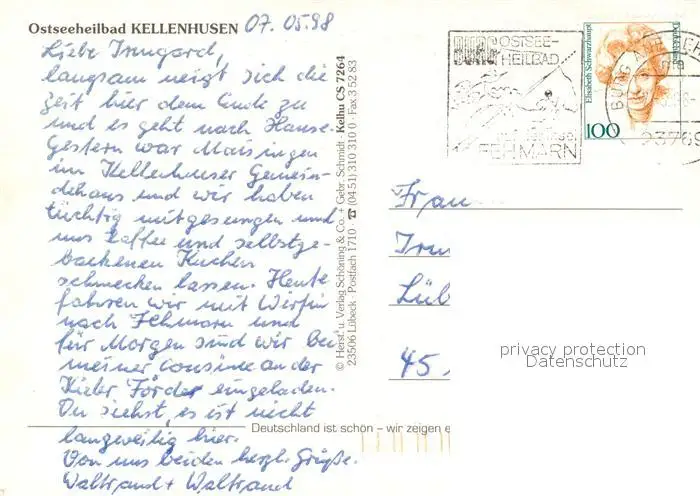 Ostseeheilbad KELLENHUSEN 07.05.98
Liebe Irmgard,
langsam neigt sich die
Zeit hier dem Ende zu
und es geht nach Hause.
Gestern war Maisingen
im Kellenhuser Gemein-
dehaus und wir haben
tüchtig mitgesungen und
uns Kaffee und selbstge-
backenen Kuchen
schmecken lassen. Heute
fahren wir mit Wirtin
nach Fehmarn und
für Morgen sind wir bei
meiner Cousine an der
Kieler Förder eingeladen.
Du siehst, es ist nicht
langweilig hier.
Von uns beiden herzl. Grüße.
Waltraud + Waltraud
© Herst. u. Verlag Schöning & Co. + Gebr. Schmidt · Kelhu CS 7264
23506 Lübeck · Postfach 1710 · ☎ (04 51) 310 310 · Fax 3 52 83
Deutschland ist schön – wir zeigen e
BURG OSTSEE-
HEILBAD
FEHMARN
Elisabeth Schwarzhaupt
Deutsche
100
BURG AUF FEH
ma
23769
Frau
Irm
Lüb
45.
privacy protection
Datenschutz